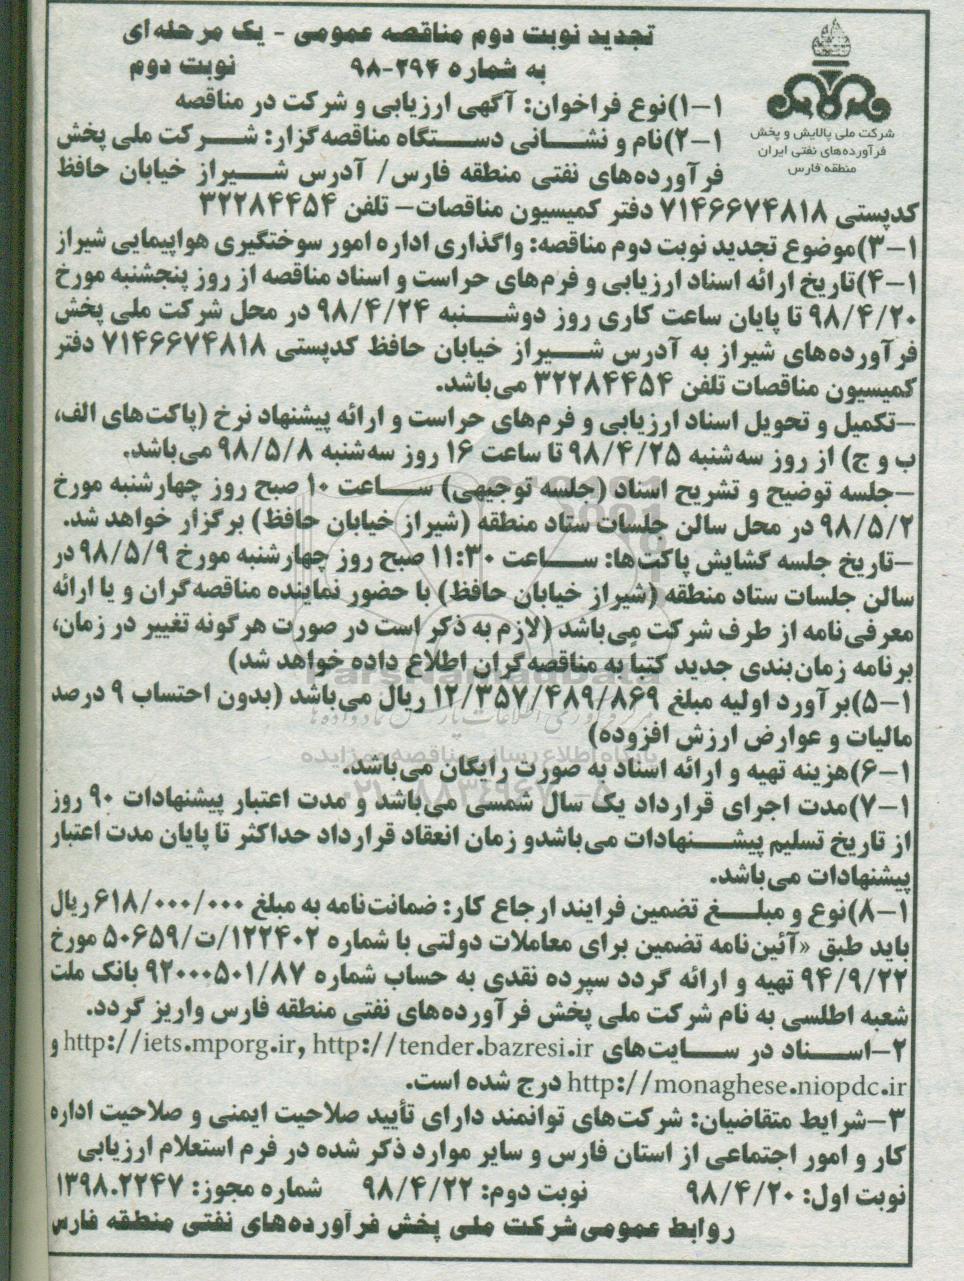 تجدید نوبت دوم مناقصه عمومی - یک مرحله‌ای
به شماره ۲۹۴-۹۸ نوبت دوم
شرکت ملی پالایش و پخش
فرآورده‌های نفتی ایران
منطقه فارس
۱-۱)نوع فراخوان: آگهی ارزیابی و شرکت در مناقصه
۱-۲)نام و نشانی دستگاه مناقصه‌گزار: شرکت ملی پخش
فرآورده‌های نفتی منطقه فارس/ آدرس شیراز خیابان حافظ
کدپستی ۷۱۴۶۶۷۴۸۱۸ دفتر کمیسیون مناقصات- تلفن ۳۲۲۸۴۴۵۴
۱-۳)موضوع تجدید نوبت دوم مناقصه: واگذاری اداره امور سوختگیری هواپیمایی شیراز
۱-۴)تاریخ ارائه اسناد ارزیابی و فرم‌های حراست و اسناد مناقصه از روز پنجشنبه مورخ
۹۸/۴/۲۰ تا پایان ساعت کاری روز دوشنبه ۹۸/۴/۲۴ در محل شرکت ملی پخش
فرآورده‌های شیراز به آدرس شیراز خیابان حافظ کدپستی ۷۱۴۶۶۷۴۸۱۸ دفتر
کمیسیون مناقصات تلفن ۳۲۲۸۴۴۵۴ می‌باشد.
-تکمیل و تحویل اسناد ارزیابی و فرم‌های حراست و ارائه پیشنهاد نرخ (پاکت‌های الف،
ب و ج) از روز سه‌شنبه ۹۸/۴/۲۵ تا ساعت ۱۶ روز سه‌شنبه ۹۸/۵/۸ می‌باشد.
-جلسه توضیح و تشریح اسناد (جلسه توجیهی) ساعت ۱۰ صبح روز چهارشنبه مورخ
۹۸/۵/۲ در محل سالن جلسات ستاد منطقه (شیراز خیابان حافظ) برگزار خواهد شد.
-تاریخ جلسه گشایش پاکت‌ها: ساعت ۱۱:۳۰ صبح روز چهارشنبه مورخ ۹۸/۵/۹ در
سالن جلسات ستاد منطقه (شیراز خیابان حافظ) با حضور نماینده مناقصه‌گران و یا ارائه
معرفی‌نامه از طرف شرکت می‌باشد (لازم به ذکر است در صورت هرگونه تغییر در زمان،
برنامه زمان‌بندی جدید کتباً به مناقصه‌گران اطلاع داده خواهد شد)
ParsNamadData
۱-۵)برآورد اولیه مبلغ ۱۲/۳۵۷/۴۸۹/۸۶۹ ریال می‌باشد (بدون احتساب ۹ درصد
مالیات و عوارض ارزش افزوده)
پایگاه اطلاع رسانی مناقصه و مزایده
۱-۶)هزینه تهیه و ارائه اسناد به صورت رایگان می‌باشد.
۱-۷)مدت اجرای قرارداد یک سال شمسی می‌باشد و مدت اعتبار پیشنهادات ۹۰ روز
از تاریخ تسلیم پیشنهادات می‌باشدو زمان انعقاد قرارداد حداکثر تا پایان مدت اعتبار
پیشنهادات می‌باشد.
۱-۸)نوع و مبلغ تضمین فرایند ارجاع کار: ضمانت‌نامه به مبلغ ۶۱۸/۰۰۰/۰۰۰ ریال
باید طبق «آئین‌نامه تضمین برای معاملات دولتی با شماره ۱۲۲۴۰۲/ت/۵۰۶۵۹ مورخ
۹۴/۹/۲۲ تهیه و ارائه گردد سپرده نقدی به حساب شماره ۹۲۰۰۰۵۰۱/۸۷ بانک ملت
شعبه اطلسی به نام شرکت ملی پخش فرآورده‌های نفتی منطقه فارس واریز گردد.
۲-اسناد در سایت‌های http://iets.mporg.ir, http://tender.bazresi.ir و
http://monaghese.niopdc.ir درج شده است.
۳-شرایط متقاضیان: شرکت‌های توانمند دارای تأیید صلاحیت ایمنی و صلاحیت اداره
کار و امور اجتماعی از استان فارس و سایر موارد ذکر شده در فرم استعلام ارزیابی
نوبت اول: ۹۸/۴/۲۰ نوبت دوم: ۹۸/۴/۲۲ شماره مجوز: ۱۳۹۸.۲۲۴۷
روابط عمومی شرکت ملی پخش فرآورده‌های نفتی منطقه فارس